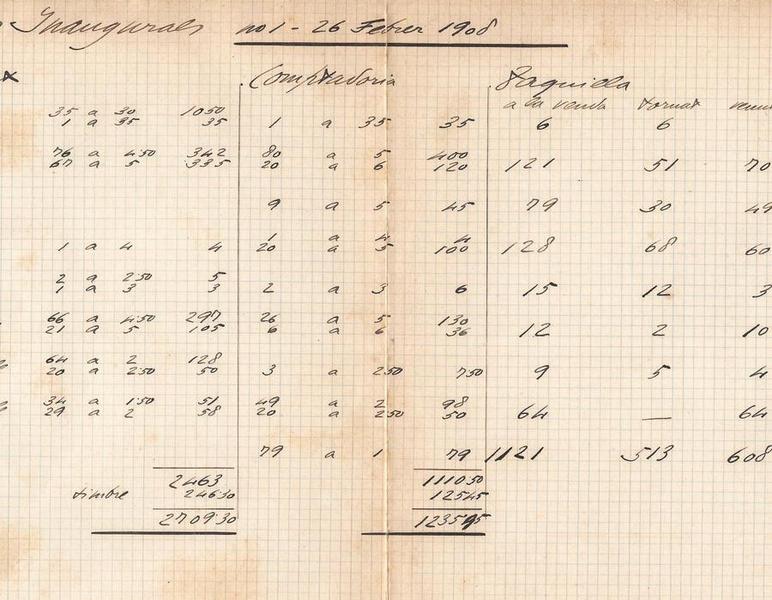 Inaugurals no 1 - 26 Febrer 1908
Comptadoria Taquilla
a la venda tornat
35 a 30 1050
1 a 35 35 1 a 35 35 6 6
76 a 4'50 342 80 a 5 400
67 a 5 335 20 a 6 120 121 51 70
9 a 5 45 79 30 49
1 a 4 4
1 a 4 4 20 a 5 100 128 68 60
2 a 2'50 5
1 a 3 3 2 a 3 6 15 12 3
66 a 4'50 297 26 a 5 130
21 a 5 105 6 a 6 36 12 2 10
64 a 2 128
20 a 2'50 50 3 a 2'50 7'50 9 5 4
34 a 1'50 51 49 a 2 98
29 a 2 58 20 a 2'50 50 64 — 64
79 a 1 79 1121 513 608
2463 1110'50
timbre 246'30 125'45
2709'30 1235'95